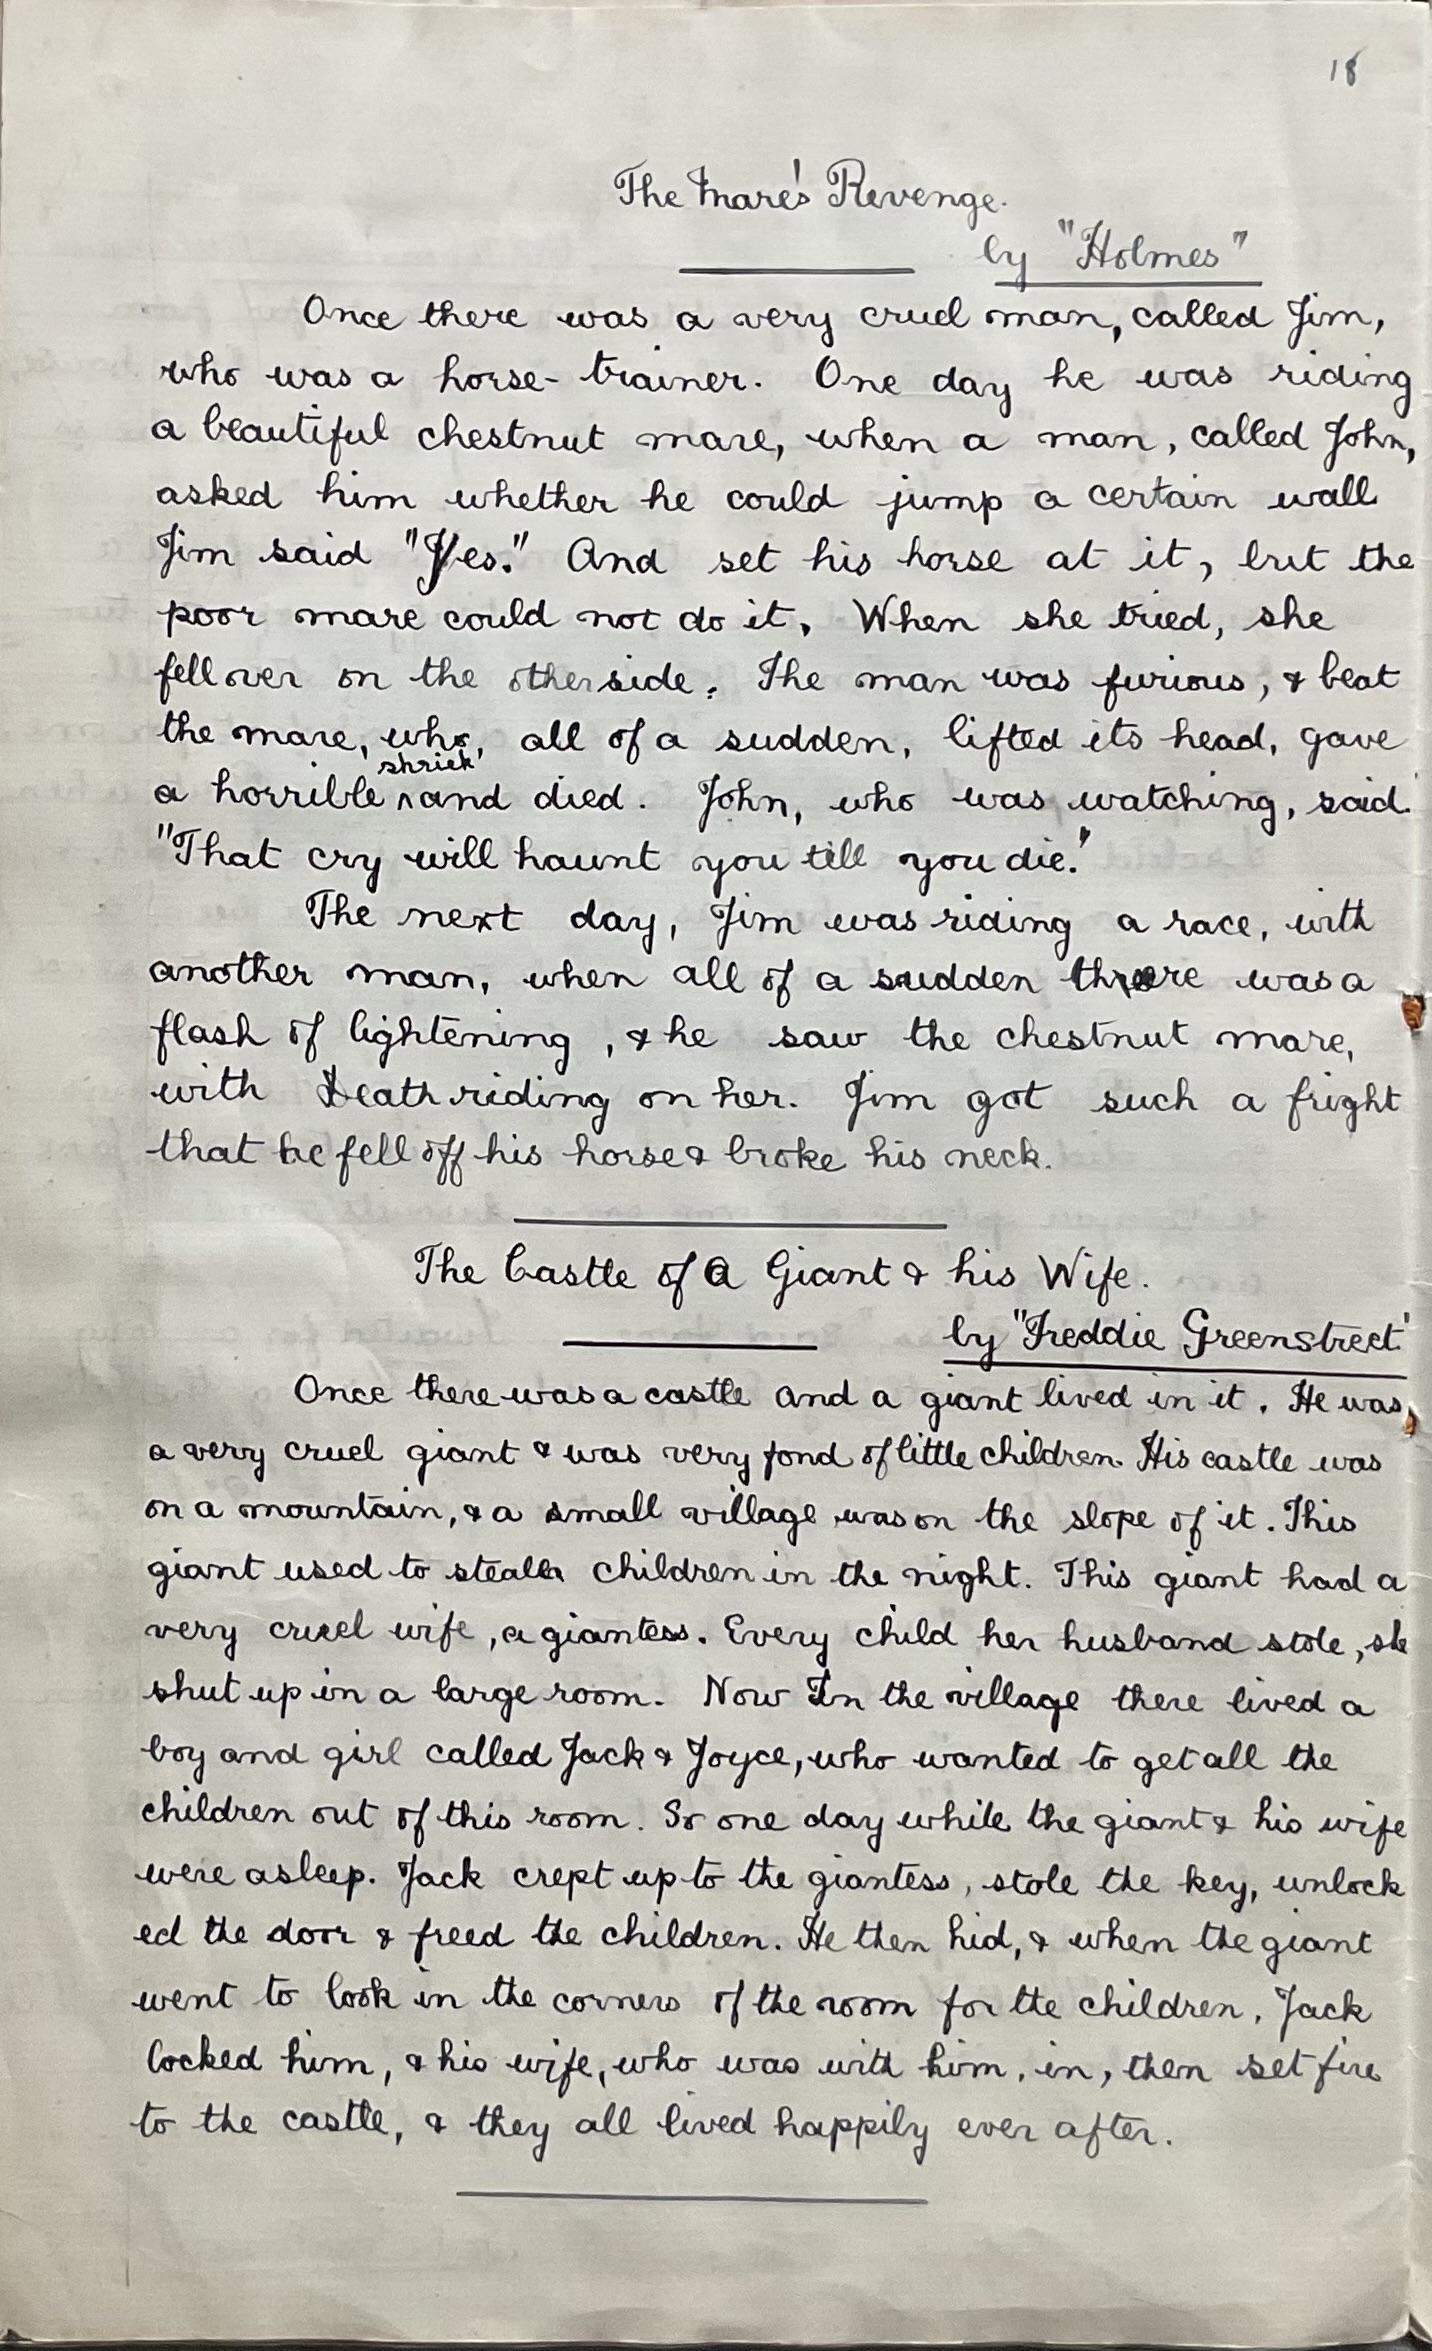 18
The Mare's Revenge.
by "Holmes"
Once there was a very cruel man, called Jim,
who was a horse-trainer. One day he was riding
a beautiful chestnut mare, when a man, called John,
asked him whether he could jump a certain wall
Jim said "Yes." And set his horse at it, but the
poor mare could not do it. When she tried, she
fell over on the other side. The man was furious, & beat
the mare, who, all of a sudden, lifted its head, gave
shriek
a horrible ^ and died. John, who was watching, said.
"That cry will haunt you till you die."
The next day, Jim was riding a race, with
another man, when all of a sudden there was a
flash of lightening, & he saw the chestnut mare,
with Death riding on her. Jim got such a fright
that he fell off his horse & broke his neck.
The Castle of a Giant & his Wife.
by "Freddie Greenstreet"
Once there was a castle and a giant lived in it. He was
a very cruel giant & was very fond of little children. His castle was
on a mountain, & a small village was on the slope of it. This
giant used to steal children in the night. This giant had a
very cruel wife, a giantess. Every child her husband stole, she
shut up in a large room. Now In the village there lived a
boy and girl called Jack & Joyce, who wanted to get all the
children out of this room. So one day while the giant & his wife
were asleep. Jack crept up to the giantess, stole the key, unlock
ed the door & freed the children. He then hid, & when the giant
went to look in the corners of the room for the children, Jack
locked him, & his wife, who was with him, in, then set fire
to the castle, & they all lived happily ever after.